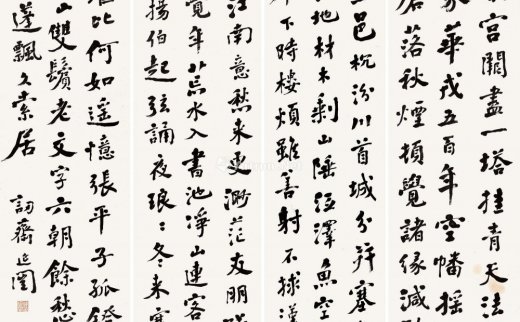 宮闕盡一塔挂青天法
華戎五百年空幡搖
落秋煙頓覺諸緣減
邑枕汾川首城分并塞
地材木剩山陲澤魚空
下時樓煩雖善射不漢
江南意愁來更渺茫友朋
年忘水入書池淨山連客
揚伯起弦誦夜琅冬來
比何如遙憶張平子孤鐙
山雙鬢老文字六朝餘愁
蓬飄久索居 訒齋 延闓